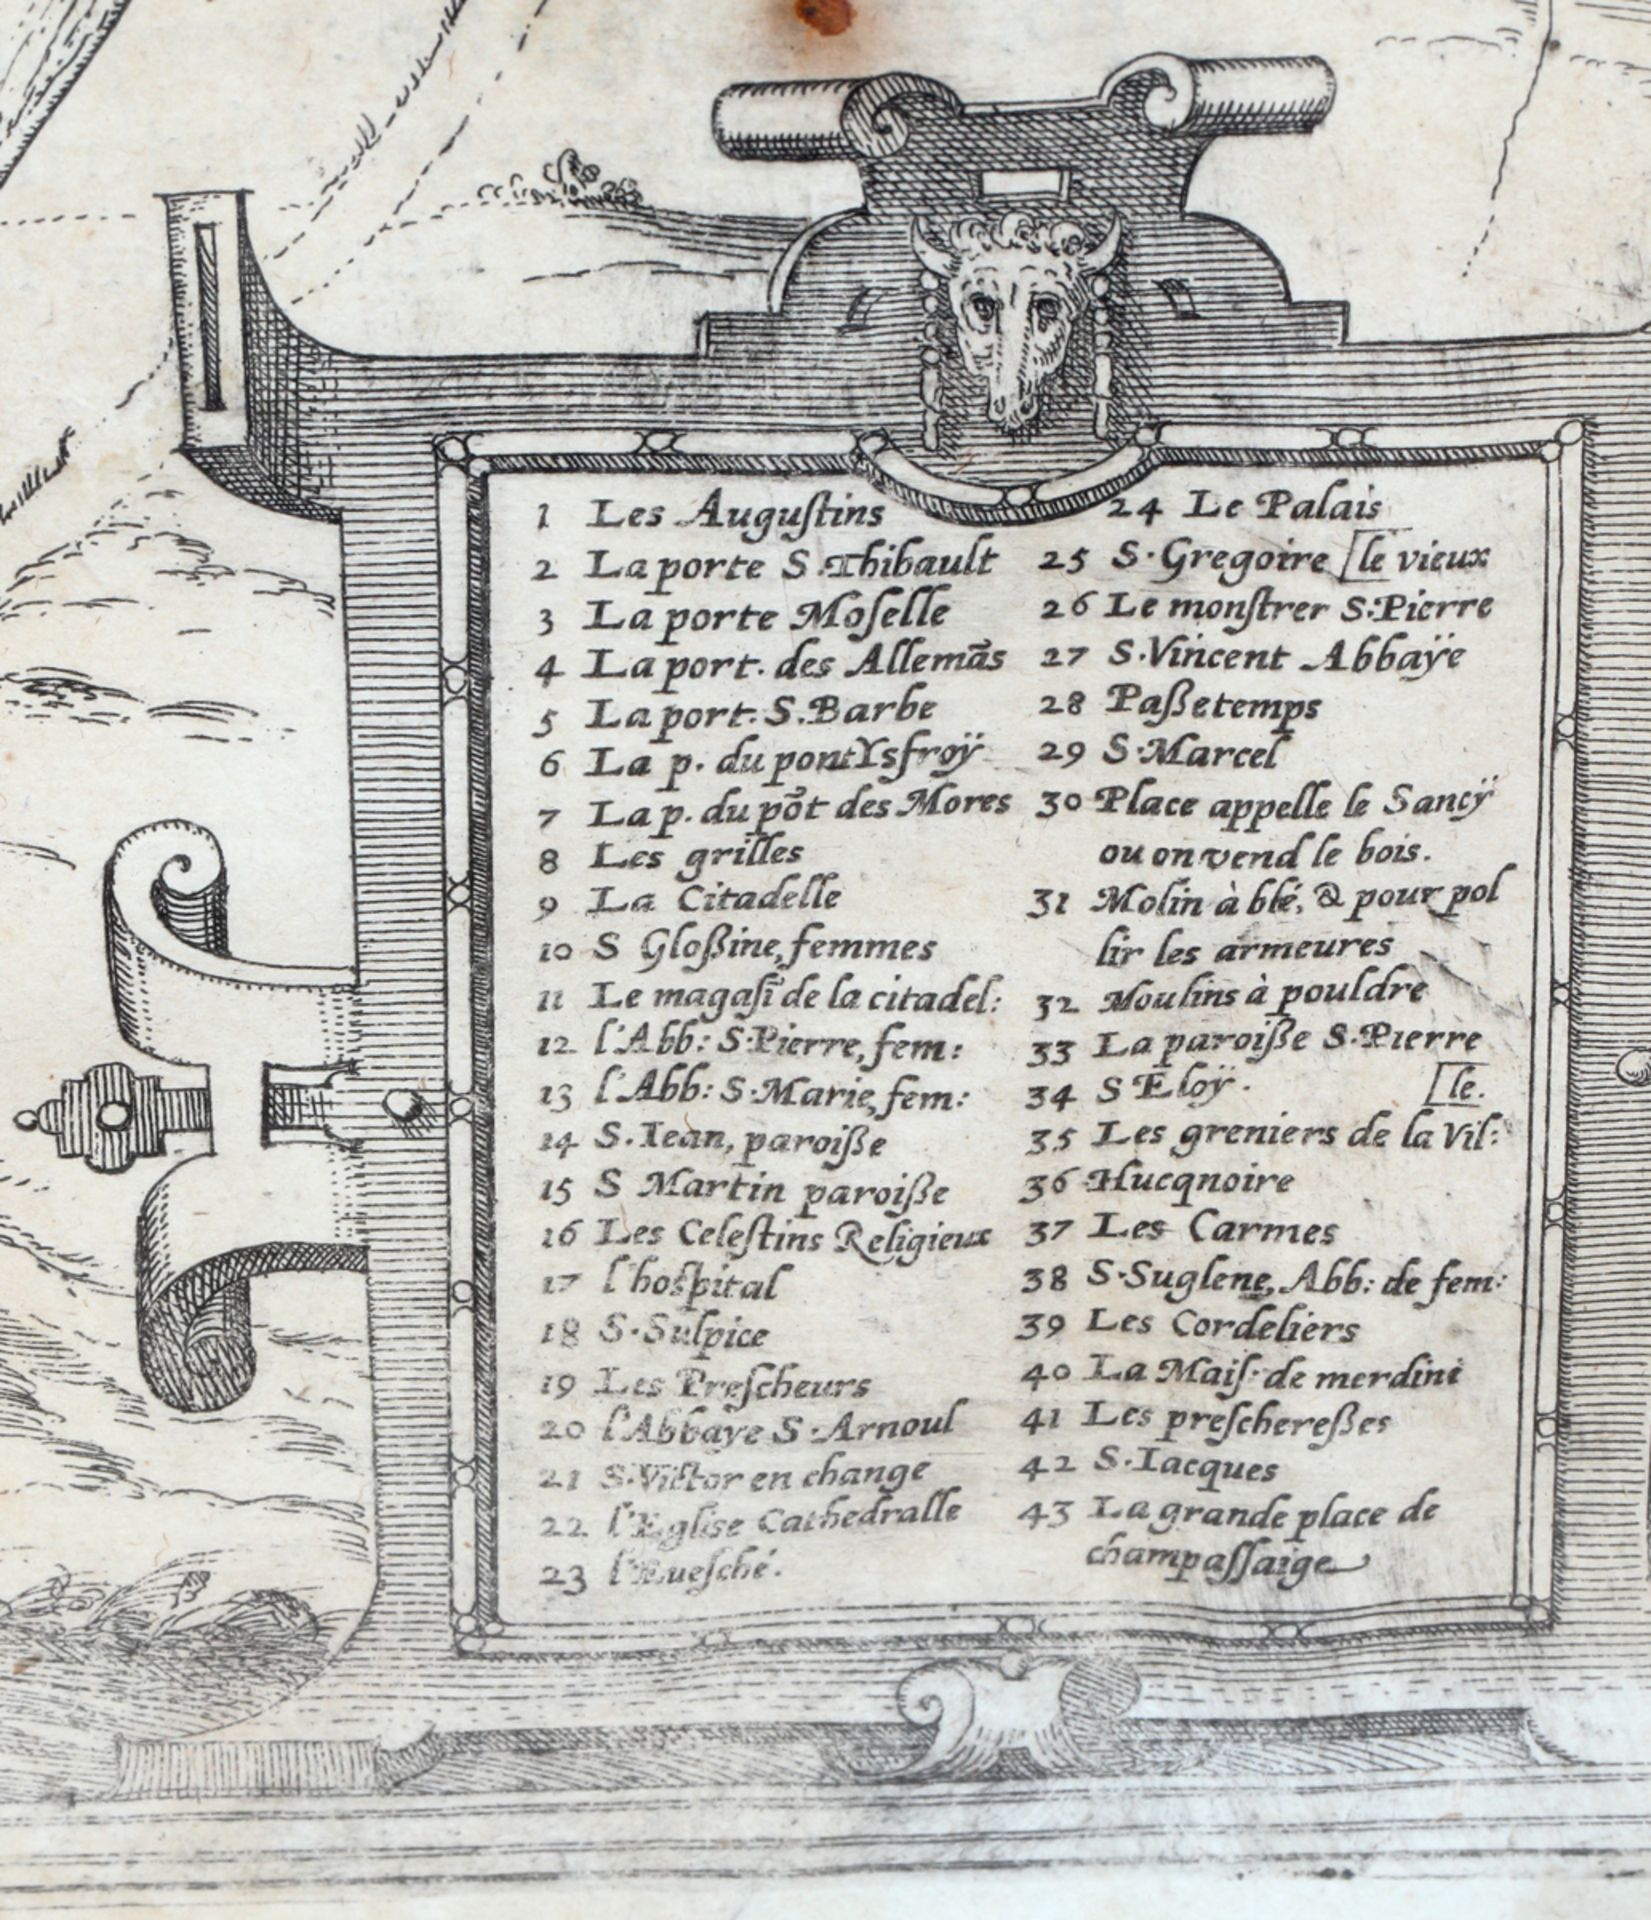 1 Les Auguſtins
2 La porte S. Thibault
3 La porte Moſelle
4 La port. des Allemãs
5 La port. S. Barbe
6 La p. du pont Ysfroÿ
7 La p. du põt des Mores
8 Les grilles
9 La Citadelle
10 S Gloßine, femmes
11 Le magaſĩ de la citadel:
12 l'Abb: S. Pierre, fem:
13 l'Abb: S. Marie, fem:
14 S. Iean, paroiße
15 S Martin paroiße
16 Les Celeſtins Religieux
17 l'hoſpital
18 S. Sulpice
19 Les Preſcheurs
20 l'Abbaye S. Arnoul
21 S. Victor en change
22 l'Egliſe Cathedralle
23 l'Eueſché.
24 Le Palais
25 S. Gregoire [le vieux
26 Le monſtrer S. Pierre
27 S. Vincent Abbaÿe
28 Paßetemps
29 S. Marcel
30 Place appelle le Sancÿ
ou on vend le bois.
31 Molin à blé, & pour pol
lir les armeures
32 Moulins à pouldre
33 La paroiße S. Pierre
34 S Eloÿ. [le.
35 Les greniers de la Vil:
36 Hucqnoire
37 Les Carmes
38 S. Suglene, Abb: de fem:
39 Les Cordeliers
40 La Maiſ. de merdini
41 Les preſchereßes
42 S. Iacques
43 La grande place de
champaſſaige